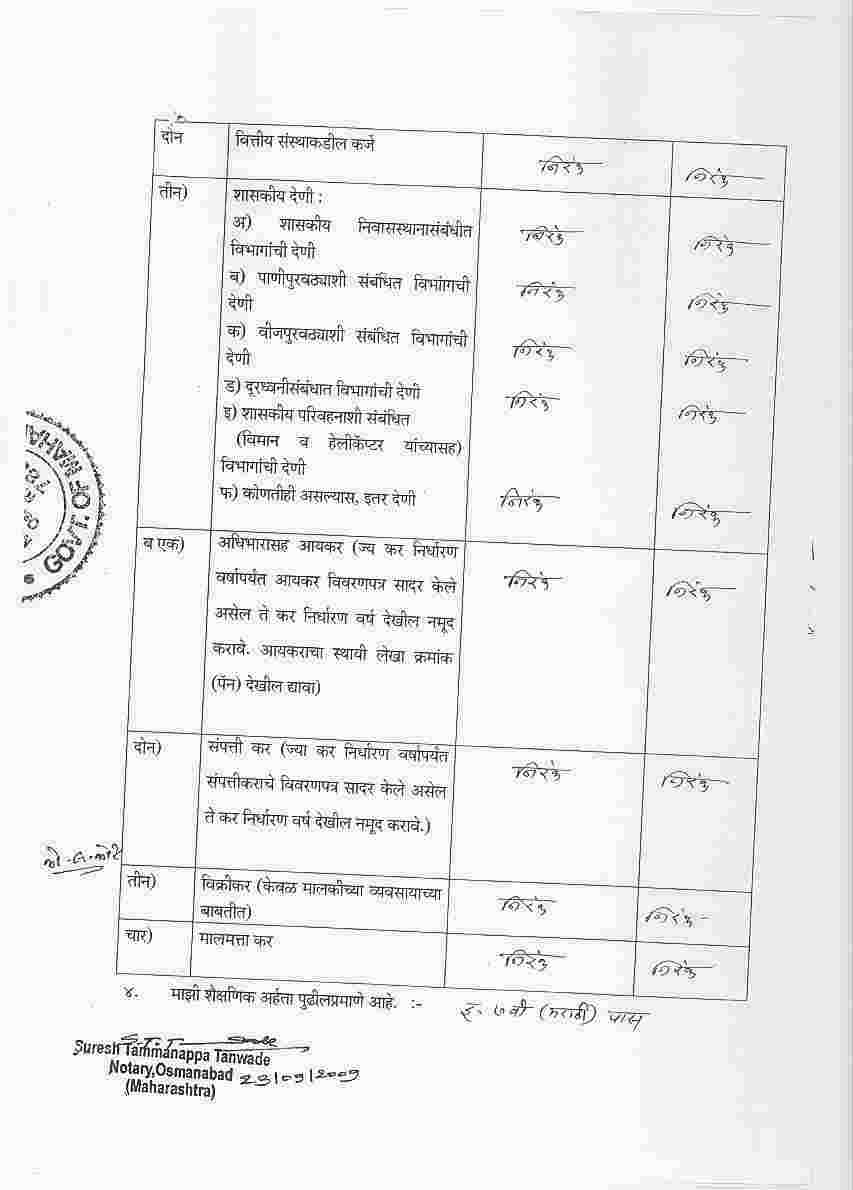 दोन वित्तीय संस्थाकडील कर्ज निरंक निरंक
तीन) शासकीय देणी :
अ) शासकीय निवासस्थानासंबंधीत निरंक निरंक
विभागांची देणी
ब) पाणीपुरवठ्याशी संबंधित विभांागची निरंक निरंक
देणी
क) वीजपुरवठ्याशी संबंधित विभागांची निरंक निरंक
देणी
ड) दूरध्वनीसंबंधात विभागांची देणी निरंक निरंक
इ) शासकीय परिवहनाशी संबंधित
(विमान व हेलीकॅप्टर यांच्यासह)
विभागांची देणी
फ) कोणतीही असल्यास, इतर देणी निरंक निरंक
GOVT. OF MAHA
ब एक) अधिभारासह आयकर (ज्य कर निर्धारण निरंक निरंक
वर्षापर्यंत आयकर विवरणपत्र सादर केले
असेल ते कर निर्धारण वर्ष देखील नमूद
करावे. आयकराचा स्थायी लेखा क्रमांक
(पॅन) देखील द्यावा)
दोन) संपत्ती कर (ज्या कर निर्धारण वर्षापर्यंत निरंक निरंक
संपत्तीकराचे विवरणपत्र सादर केले असेल
ते कर निर्धारण वर्ष देखील नमूद करावे.)
तीन) विक्रीकर (केवळ मालकीच्या व्यवसायाच्या निरंक निरंक
बाबतीत)
चार) मालमत्ता कर निरंक निरंक
४. माझी शैक्षणिक अर्हता पुढीलप्रमाणे आहे. :- इ. ७वी (मराठी) पास
Suresh Tammanappa Tanwade
Notary,Osmanabad 23/09/2009
(Maharashtra)